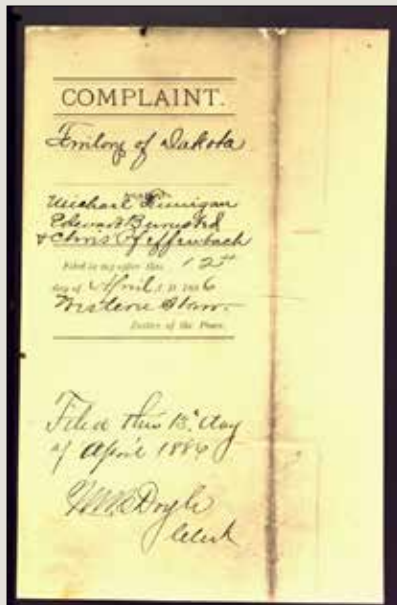 COMPLAINT.
Territory of Dakota
AGAINST
Michael Finnigan
Edward Burnsted
& Chris Pfeffenbach
Filed in my office this 12th
day of April A. D. 1886
Justice of the Peace.
Filed this 13th day
of April 1886
Doyle
Clerk